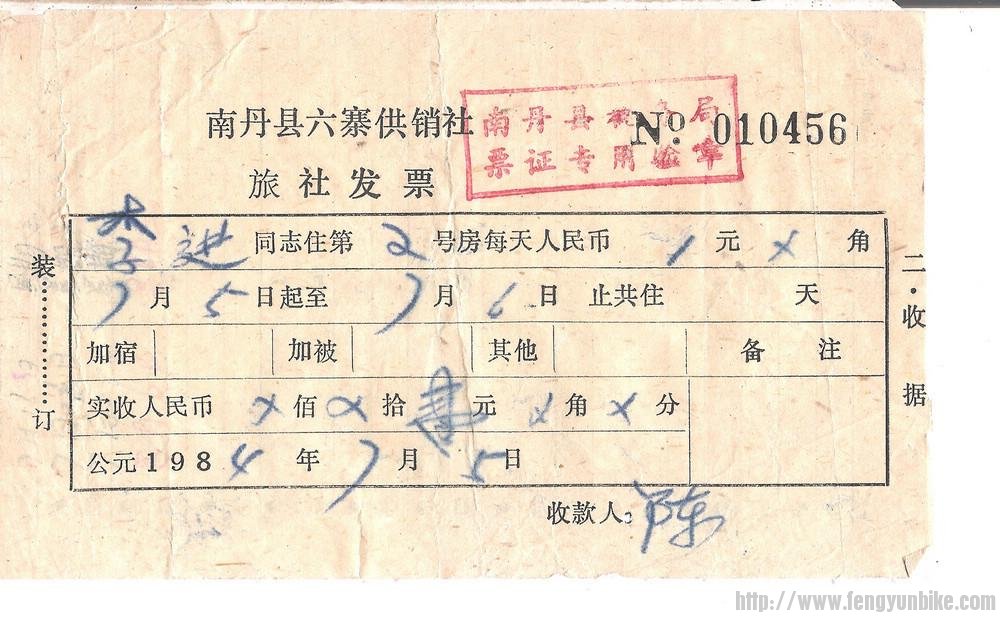 南丹县六寨供销社
№ 010456
南丹县税务局
票证专用验章
旅社发票
李进 同志住第 2 号房每天人民币 1 元 x 角
7月 5日起至 7月 6日 止共住 天
加宿 加被 其他 备 注
实收人民币 x 佰 x 拾 元 x 角 x 分
公元1984 年 7月 5日
收款人: 陈
装 订
二·收 据
http://www.fengyunbike.com